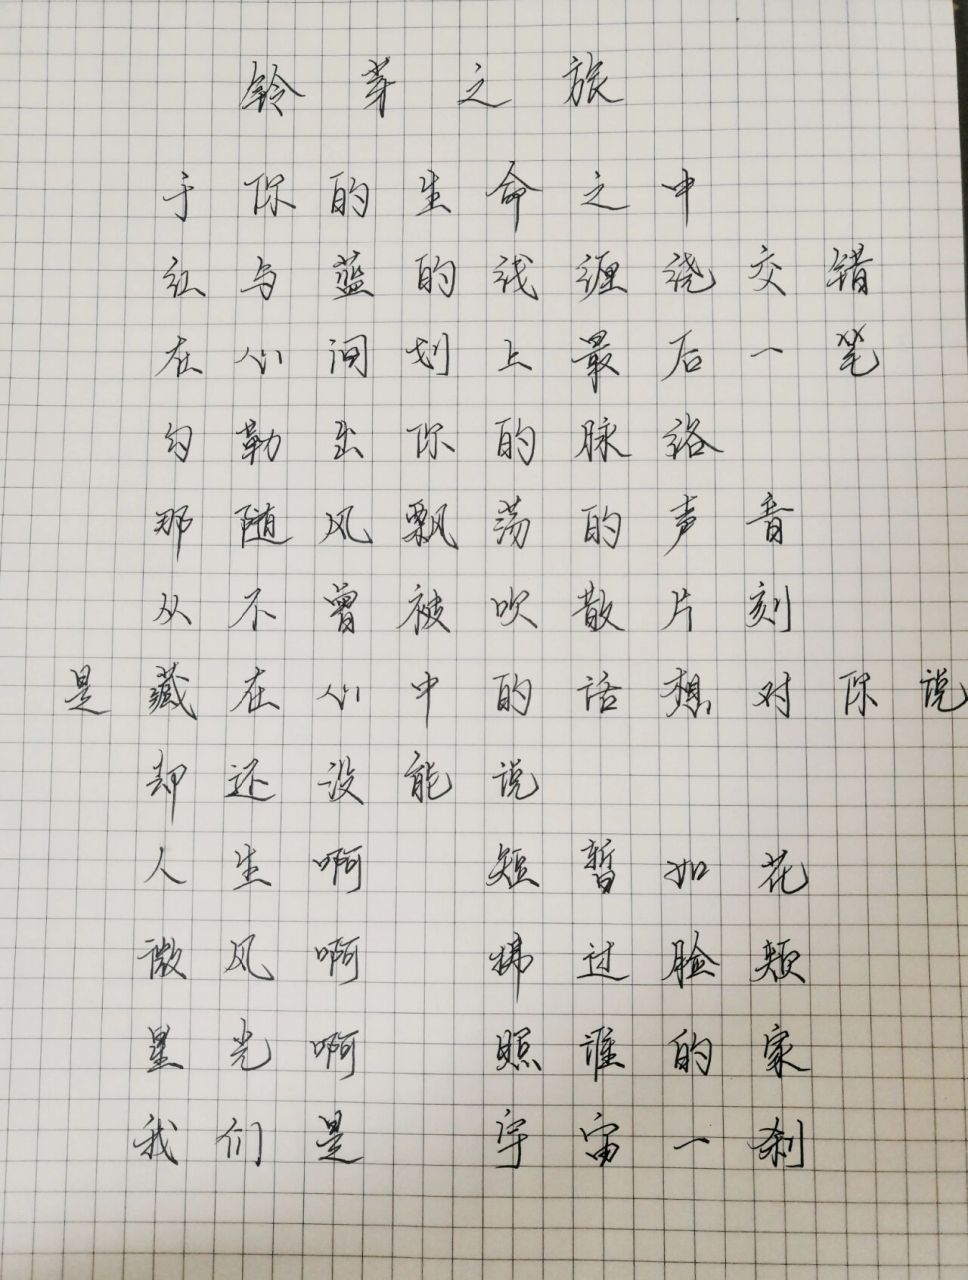 铃芽之旅
于你的生命之中
红与蓝的线缠绕交错
在心间划上最后一笔
勾勒出你的脉络
那随风飘荡的声音
从不曾被吹散片刻
是藏在心中的话想对你说
却还没能说
人生啊 短暂如花
微风啊 拂过脸颊
星光啊 照谁的家
我们是 宇宙一刹